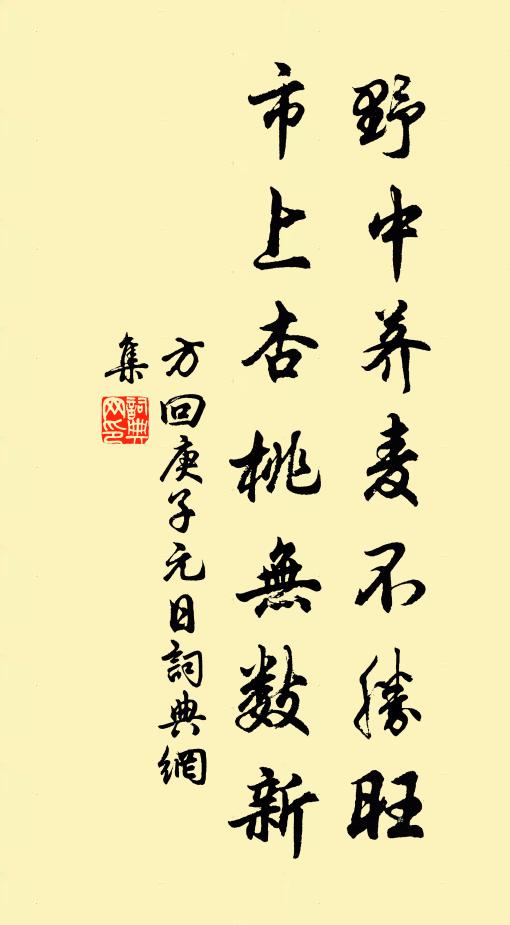 野中荞麦不勝旺
市上杏桃無數新
方回庚子元日詞典網
集
詞典
网印